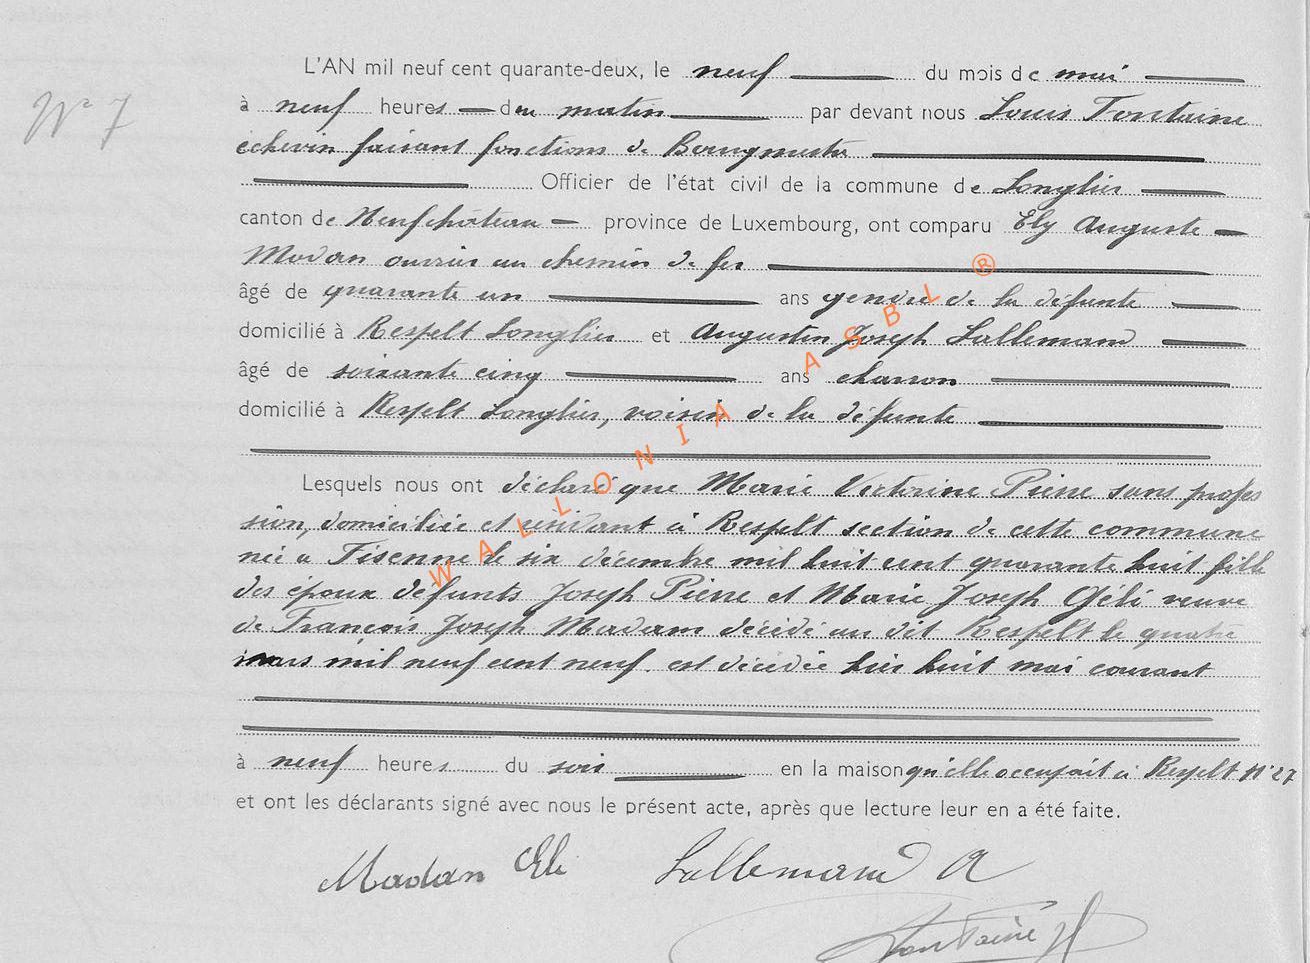 N° 7
L'AN mil neuf cent quarante-deux, le neuf du mois de mai
à neuf heures du matin par devant nous Louis Fontaine
échevin faisant fonctions de Bourgmestre
Officier de l'état civil de la commune de Longlier
canton de Neufchâteau province de Luxembourg, ont comparu Ely Auguste
Madan ouvrier au chemin de fer
âgé de quarante un ans gendre de la défunte
domicilié à Respelt Longlier et Augustin Joseph Lallemand
âgé de soixante cinq ans charron
domicilié à Respelt Longlier, voisin de la défunte
Lesquels nous ont déclaré que Marie Victorine Pierre sans profes
sion, domiciliée et résidant à Respelt section de cette commune
née à Fisenne le six décembre mil huit cent quarante huit fille
des époux défunts Joseph Pierre et Marie Joseph Géli veuve
de François Joseph Madan décédé au dit Respelt le quatre
mars mil neuf cent neuf est décédée hier huit mai courant
à neuf heures du soir en la maison qu'elle occupait à Respelt N° 27
et ont les déclarants signé avec nous le présent acte, après que lecture leur en a été faite.
Madan Eli Lallemand A
Fontaine
WALLONIA ASBL ®